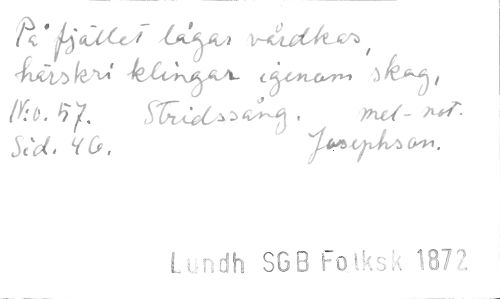 På fjället lågar vårdkas,
härskri klingar igenom skog,
N:o. 57. Stridssång. mel-not.
Sid. 46. Josephson.
Lundh SGB Folksk 1872